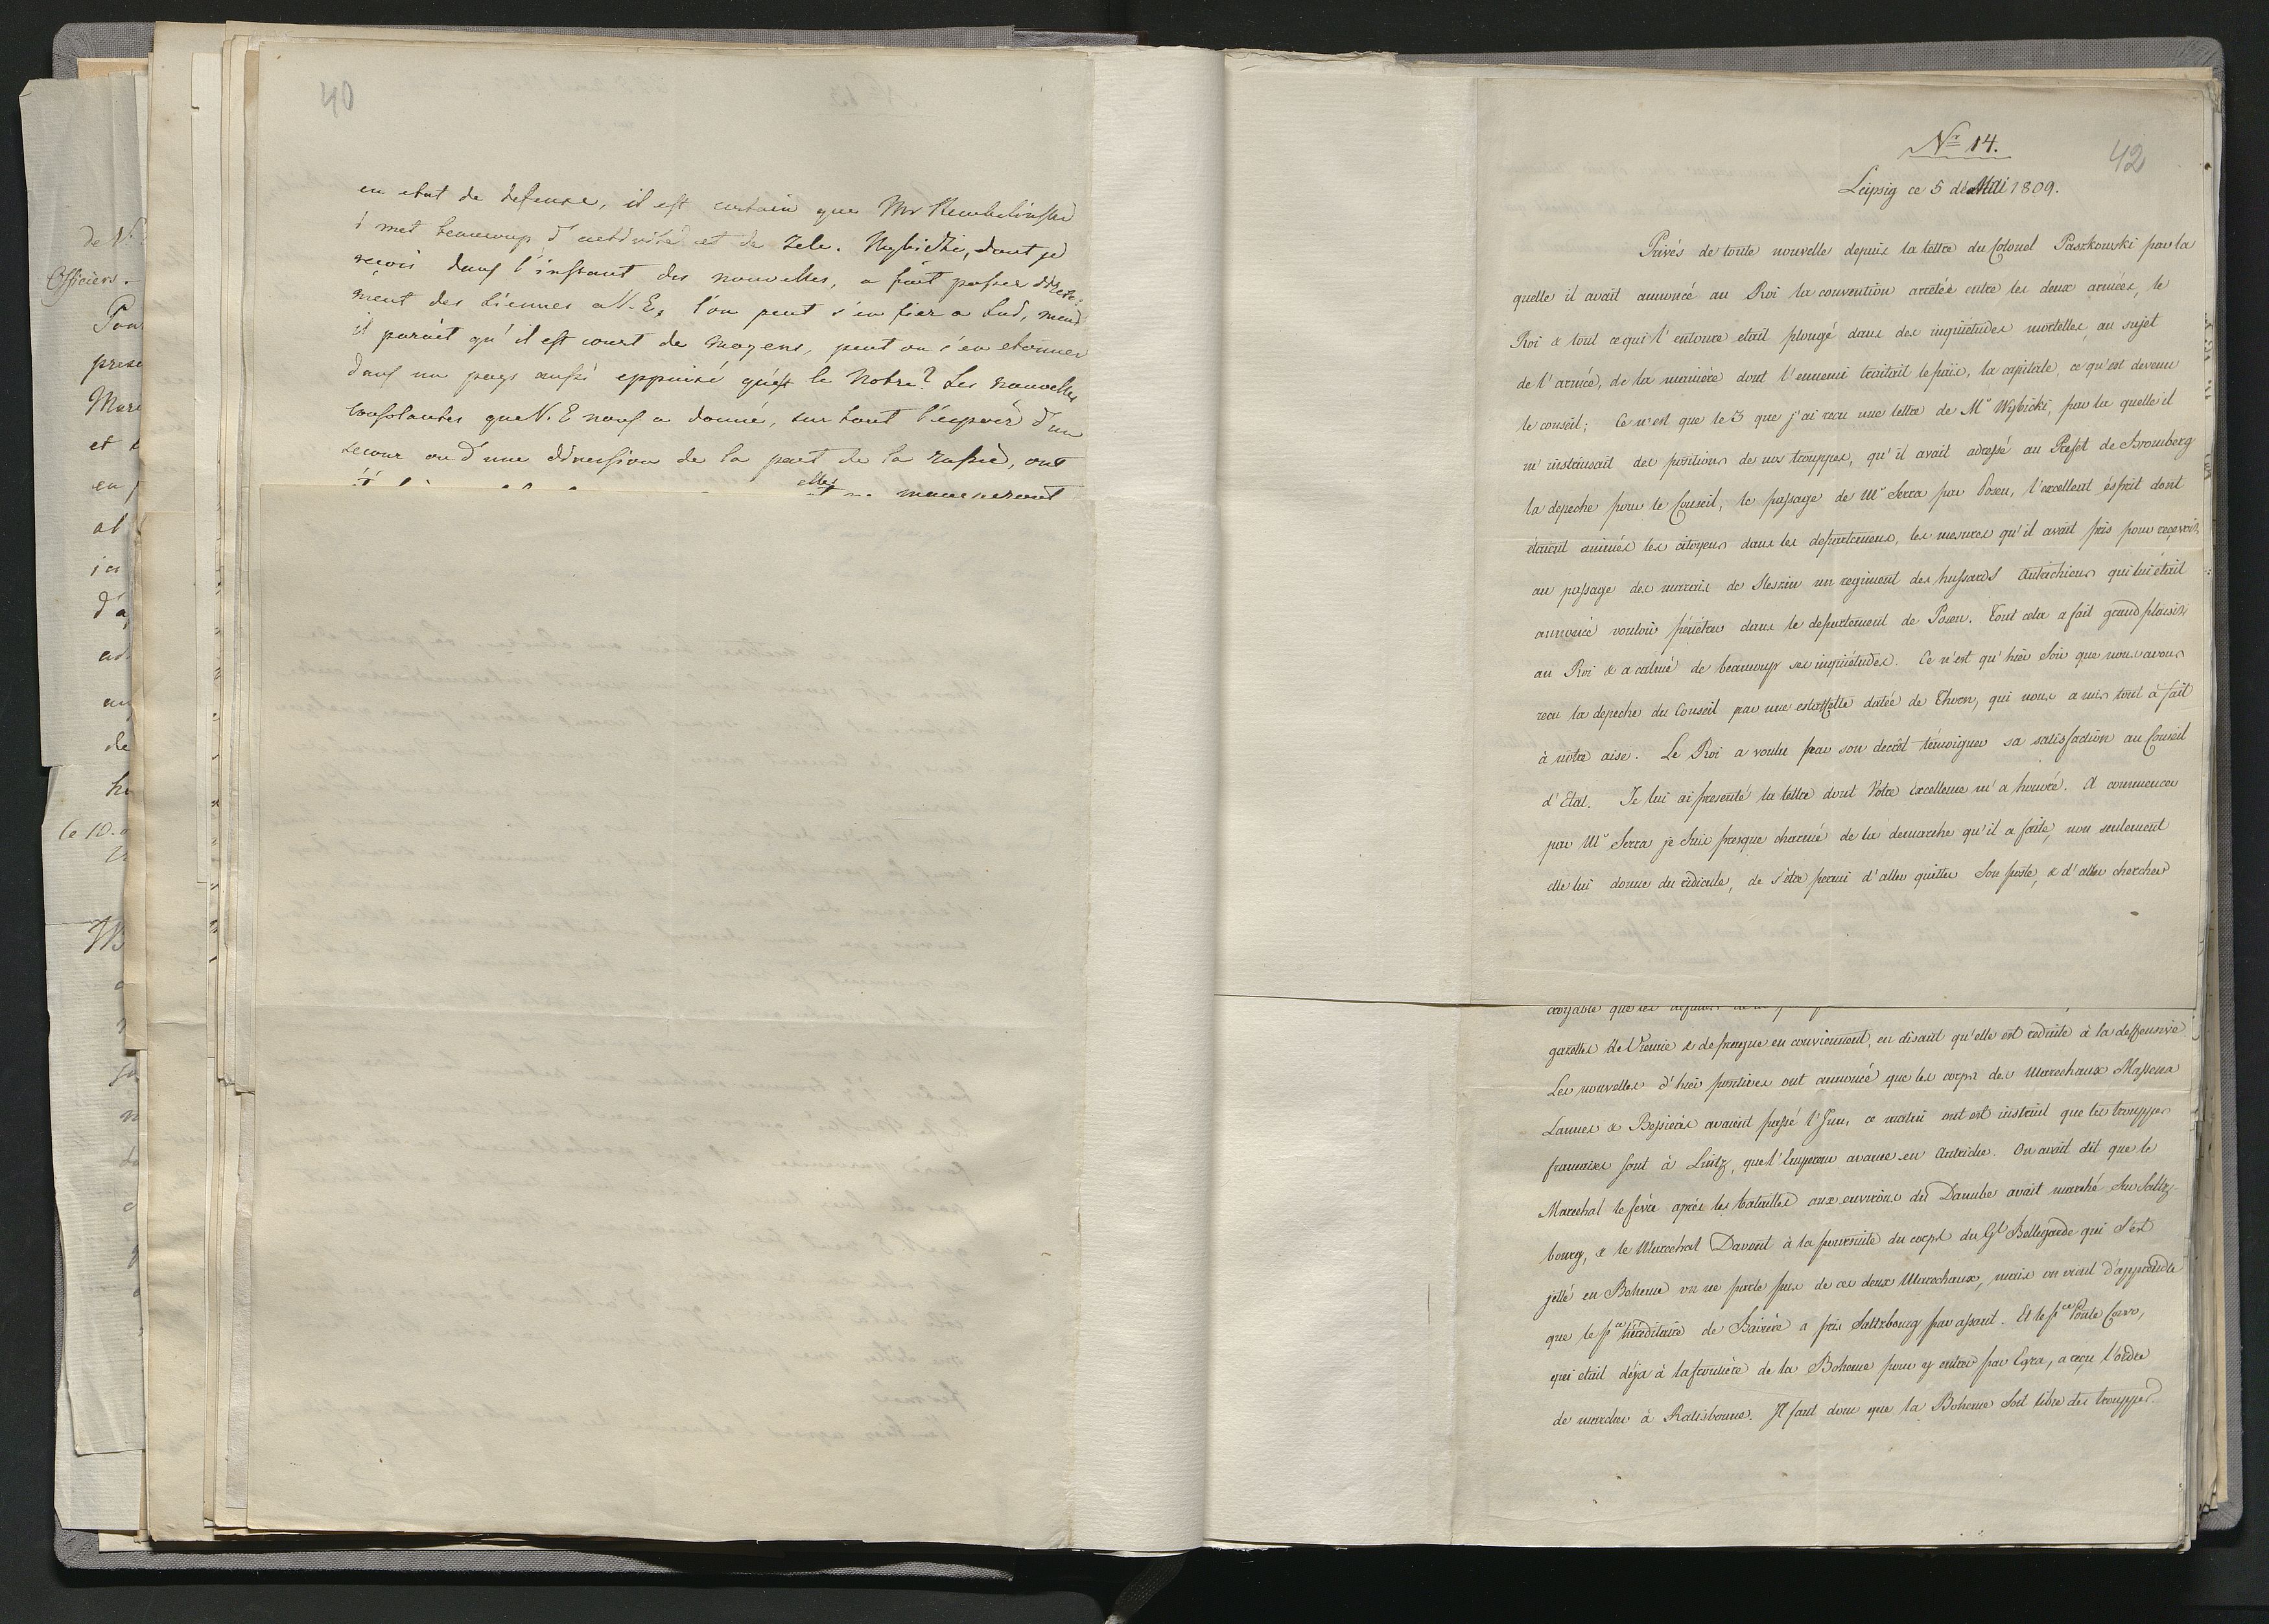 de N.
Officiers.
Pour
prese
Mare
et
en
al
ici
d'a
ad
de
le 10.
40
en etat de defense, il est certain que Mr Rembelinski
i met beaucoup d'activité et de zele. Wybicki, dont je
reçois dans l'instant des nouvelles, a fait passer directe-
ment des siennes a V. E, l'on peut s'en fier a lui, mais
il parait qu'il est court de moyens, peut on s'en etonner
dans un pays aussi eppuisé qu'est le Notre? Les nouvelles
consolantes que V. E nous a donné, sur tout l'espoir d'un
secour ou d'une diversion de la part de la Russie, ont
elles manqueront
Nr 14.
42
Leipsig ce 5 de Mai 1809.
Privés de toute nouvelle depuis la lettre du Colonel Paszkowski par la
quelle il avait annoncé au Roi la convention arrêtée entre les deux armées, le
Roi & tout ce qui l'entoure etait plongé dans des inquiétudes mortelles, au sujet
de l'armée, de la manière dont l'ennemi traitait le païs, la capitale, ce qu'est devenu
le conseil; Ce n'est que le 3 que j'ai recu une lettre de Mr Wybicki, par la quelle il
m'instruisait des positions de nos trouppes, qu'il avait adressé au Prefet de Bromberg
la depeche pour le Conseil, le passage de Mr Serra par Posen, l'excellent ésprit dont
étaient animés les citoyens dans les departemens, les mesures qu'il avait pris pour recevoir
au passage des marais de Sleszin un regiment des hussards Autrichiens qui lui était
annoncé vouloir pénétrer dans le departement de Posen. Tout cela a fait grand plaisir
au Roi & a calmé de beaucoup ses inquiétudes. Ce n'est qu'hier Soir que nous avons
recu la depeche du Conseil par une estaffette datée de Thorn, qui nous a mis tout à fait
à notre aise. Le Roi a voulu par son decrêt témoigner sa satisfaction au Conseil
d'Etat. Je lui ai presenté la lettre dont Votre Excellence m'a honoré. A commencer
par Mr Serra je Suis presque charmé de la demarche qu'il a faite, non seulement
elle lui donne du ridicule, de s'étre permi d'aller quitter Son poste, & d'aller chercher
croyable que les
gazettes de Vienne & de prague en conviennent, en disant qu'elle est reduite à la deffensive.
Les nouvelles d'hier positives ont annoncé que les corps des Marechaux Massena
Lannes & Bessieres avaient passé l'Inn, ce matin ont est instruit que les trouppes
francaises sont à Lintz, que l'Empereur avance en Autriche. On avait dit que le
Marechal le fèvre après les batailles aux environs du Danube avait marché Sur Saltz-
bourg, & le Marechal Davout à la poursuite du corps du Gl Bellegarde qui s'est
jetté en Boheme on ne parle pas de ces deux Marechaux, mais on vient d'apprendre
que le pce héréditaire de Bavière a pris Saltzbourg par assaut. Et le pce Ponte Corvo,
qui etait déja à la frontière de la Boheme pour y entrer par Egra, a reçu l'ordre
de marcher à Ratisbonne. Il faut donc que la Boheme Soit libre des trouppes